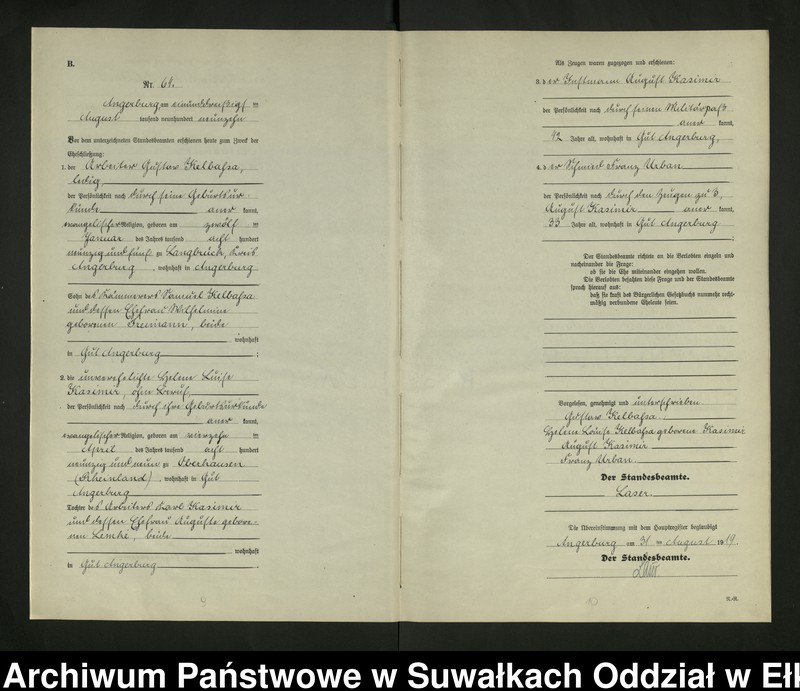 B.
Nr. 64.
Angerburg am einunddreißigsten
August tausend neunhundert neunzehn
Vor dem unterzeichneten Standesbeamten erschienen heute zum Zweck der
Eheschließung:
1. der Arbeiter Gustav Kelbassa,
ledig,
der Persönlichkeit nach durch seine Geburtsur-
kunde anerkannt,
evangelischer Religion, geboren am zwölften
Januar des Jahres tausend acht hundert
neunzig und fünf zu Langbrück, Kreis
Angerburg, wohnhaft in Angerburg
Sohn des Kämmerers Samuel Kelbassa
und dessen Ehefrau Wilhelmine
geborenen Freimann, beide
wohnhaft
in Gut Angerburg ;
2. die unverehelichte Helene Luise
Kasimir, ohne Beruf,
der Persönlichkeit nach durch ihre Geburtsurkunde
anerkannt,
evangelischer Religion, geboren am vierzehnten
April des Jahres tausend acht hundert
neunzig und neun zu Oberhausen
(Rheinland), wohnhaft in Gut
Angerburg
Tochter des Arbeiters Karl Kasimir
und dessen Ehefrau Auguste gebore-
nen Lemke, beide
wohnhaft
in Gut Angerburg .
9
Als Zeugen waren zugezogen und erschienen:
3. der Instmann August Kasimir
der Persönlichkeit nach durch seinen Militärpaß
anerkannt,
42 Jahre alt, wohnhaft in Gut Angerburg,
4. der Schmied Franz Urban
der Persönlichkeit nach durch den Zeugen zu 3,
August Kasimir anerkannt,
33 Jahre alt, wohnhaft in Gut Angerburg
;
Der Standesbeamte richtete an die Verlobten einzeln und
nacheinander die Frage:
ob sie die Ehe miteinander eingehen wollen.
Die Verlobten bejahten diese Frage und der Standesbeamte
sprach hierauf aus:
daß sie kraft des Bürgerlichen Gesetzbuchs nunmehr recht-
mäßig verbundene Eheleute seien.
Vorgelesen, genehmigt und unterschrieben
Gustav Kelbassa.
Helene Louise Kelbassa geborene Kasimir
August Kasimir
Franz Urban.
Der Standesbeamte.
Laser.
Die Übereinstimmung mit dem Hauptregister beglaubigt
Angerburg am 31 ten August 1919.
Der Standesbeamte.
10
R.-R.
Archiwum Państwowe w Suwałkach Oddział w Ełk